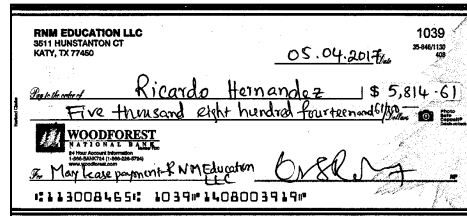 RNM EDUCATION LLC
3511 HUNSTANTON CT
KATY, TX 77450
1039
35-846/1130
408
05.04.2017 Date
Pay to the order of Ricardo Hernandez $ 5,814.61
Five thousand eight hundred fourteen and 61/100 Dollars
Photo Safe Deposit®
WOODFOREST
NATIONAL BANK
24 Hour Account Information
www.woodforest.com
For May lease payment-RNM Education
LLC
⑆113008465⑆ 1039⑈1408003919⑈